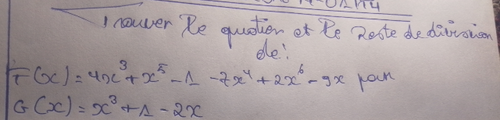 Trouver le quotien et le Reste de division
de:
F(x) = 4x³ + x⁵ - 1 - 7x⁴ + 2x⁶ - 9x par
G(x) = x³ + 1 - 2x